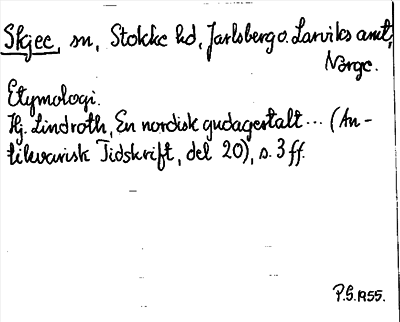 Skjee, sn, Stokke hd, Jarlsberg o. Larviks amt,
Norge.
Etymologi.
Hj. Lindroth, En nordisk gudagestalt... (An-
tikvarisk Tidskrift, del 20), s. 3 ff.
P.G. 1955.